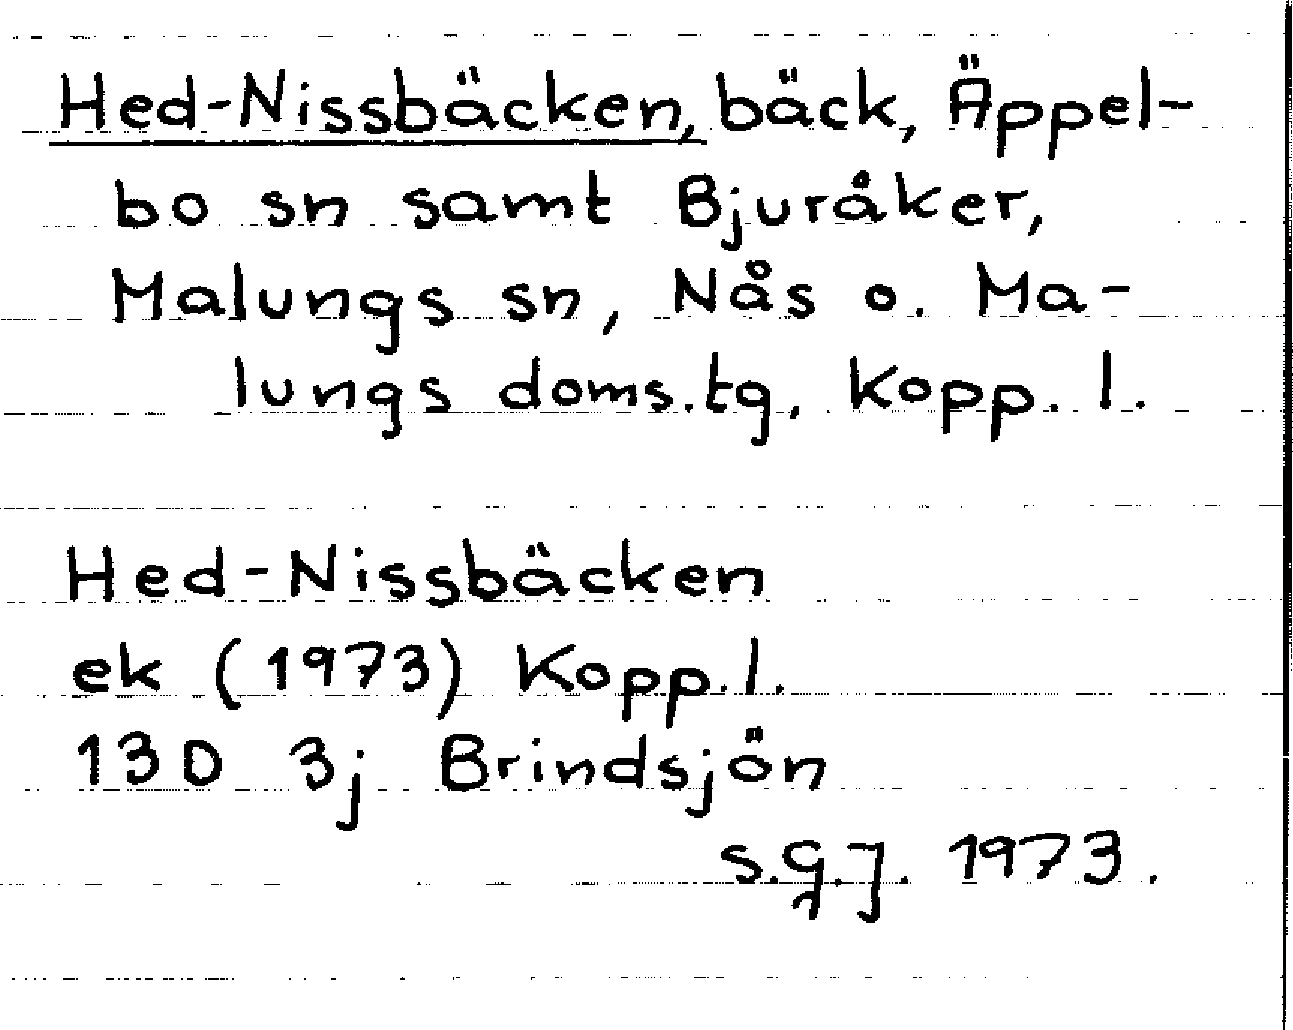 Hed-Nissbäcken, bäck, Äppel-
bo sn samt Bjuråker,
Malungs sn, Nås o. Ma-
lungs doms.tg, Kopp. l.
Hed-Nissbäcken
ek (1973) Kopp. l.
13D 3j Brindsjön
S.G.J. 1973.